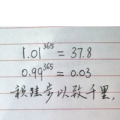 1.01³⁶⁵ = 37.8
0.99³⁶⁵ = 0.03
积跬步以致千里,